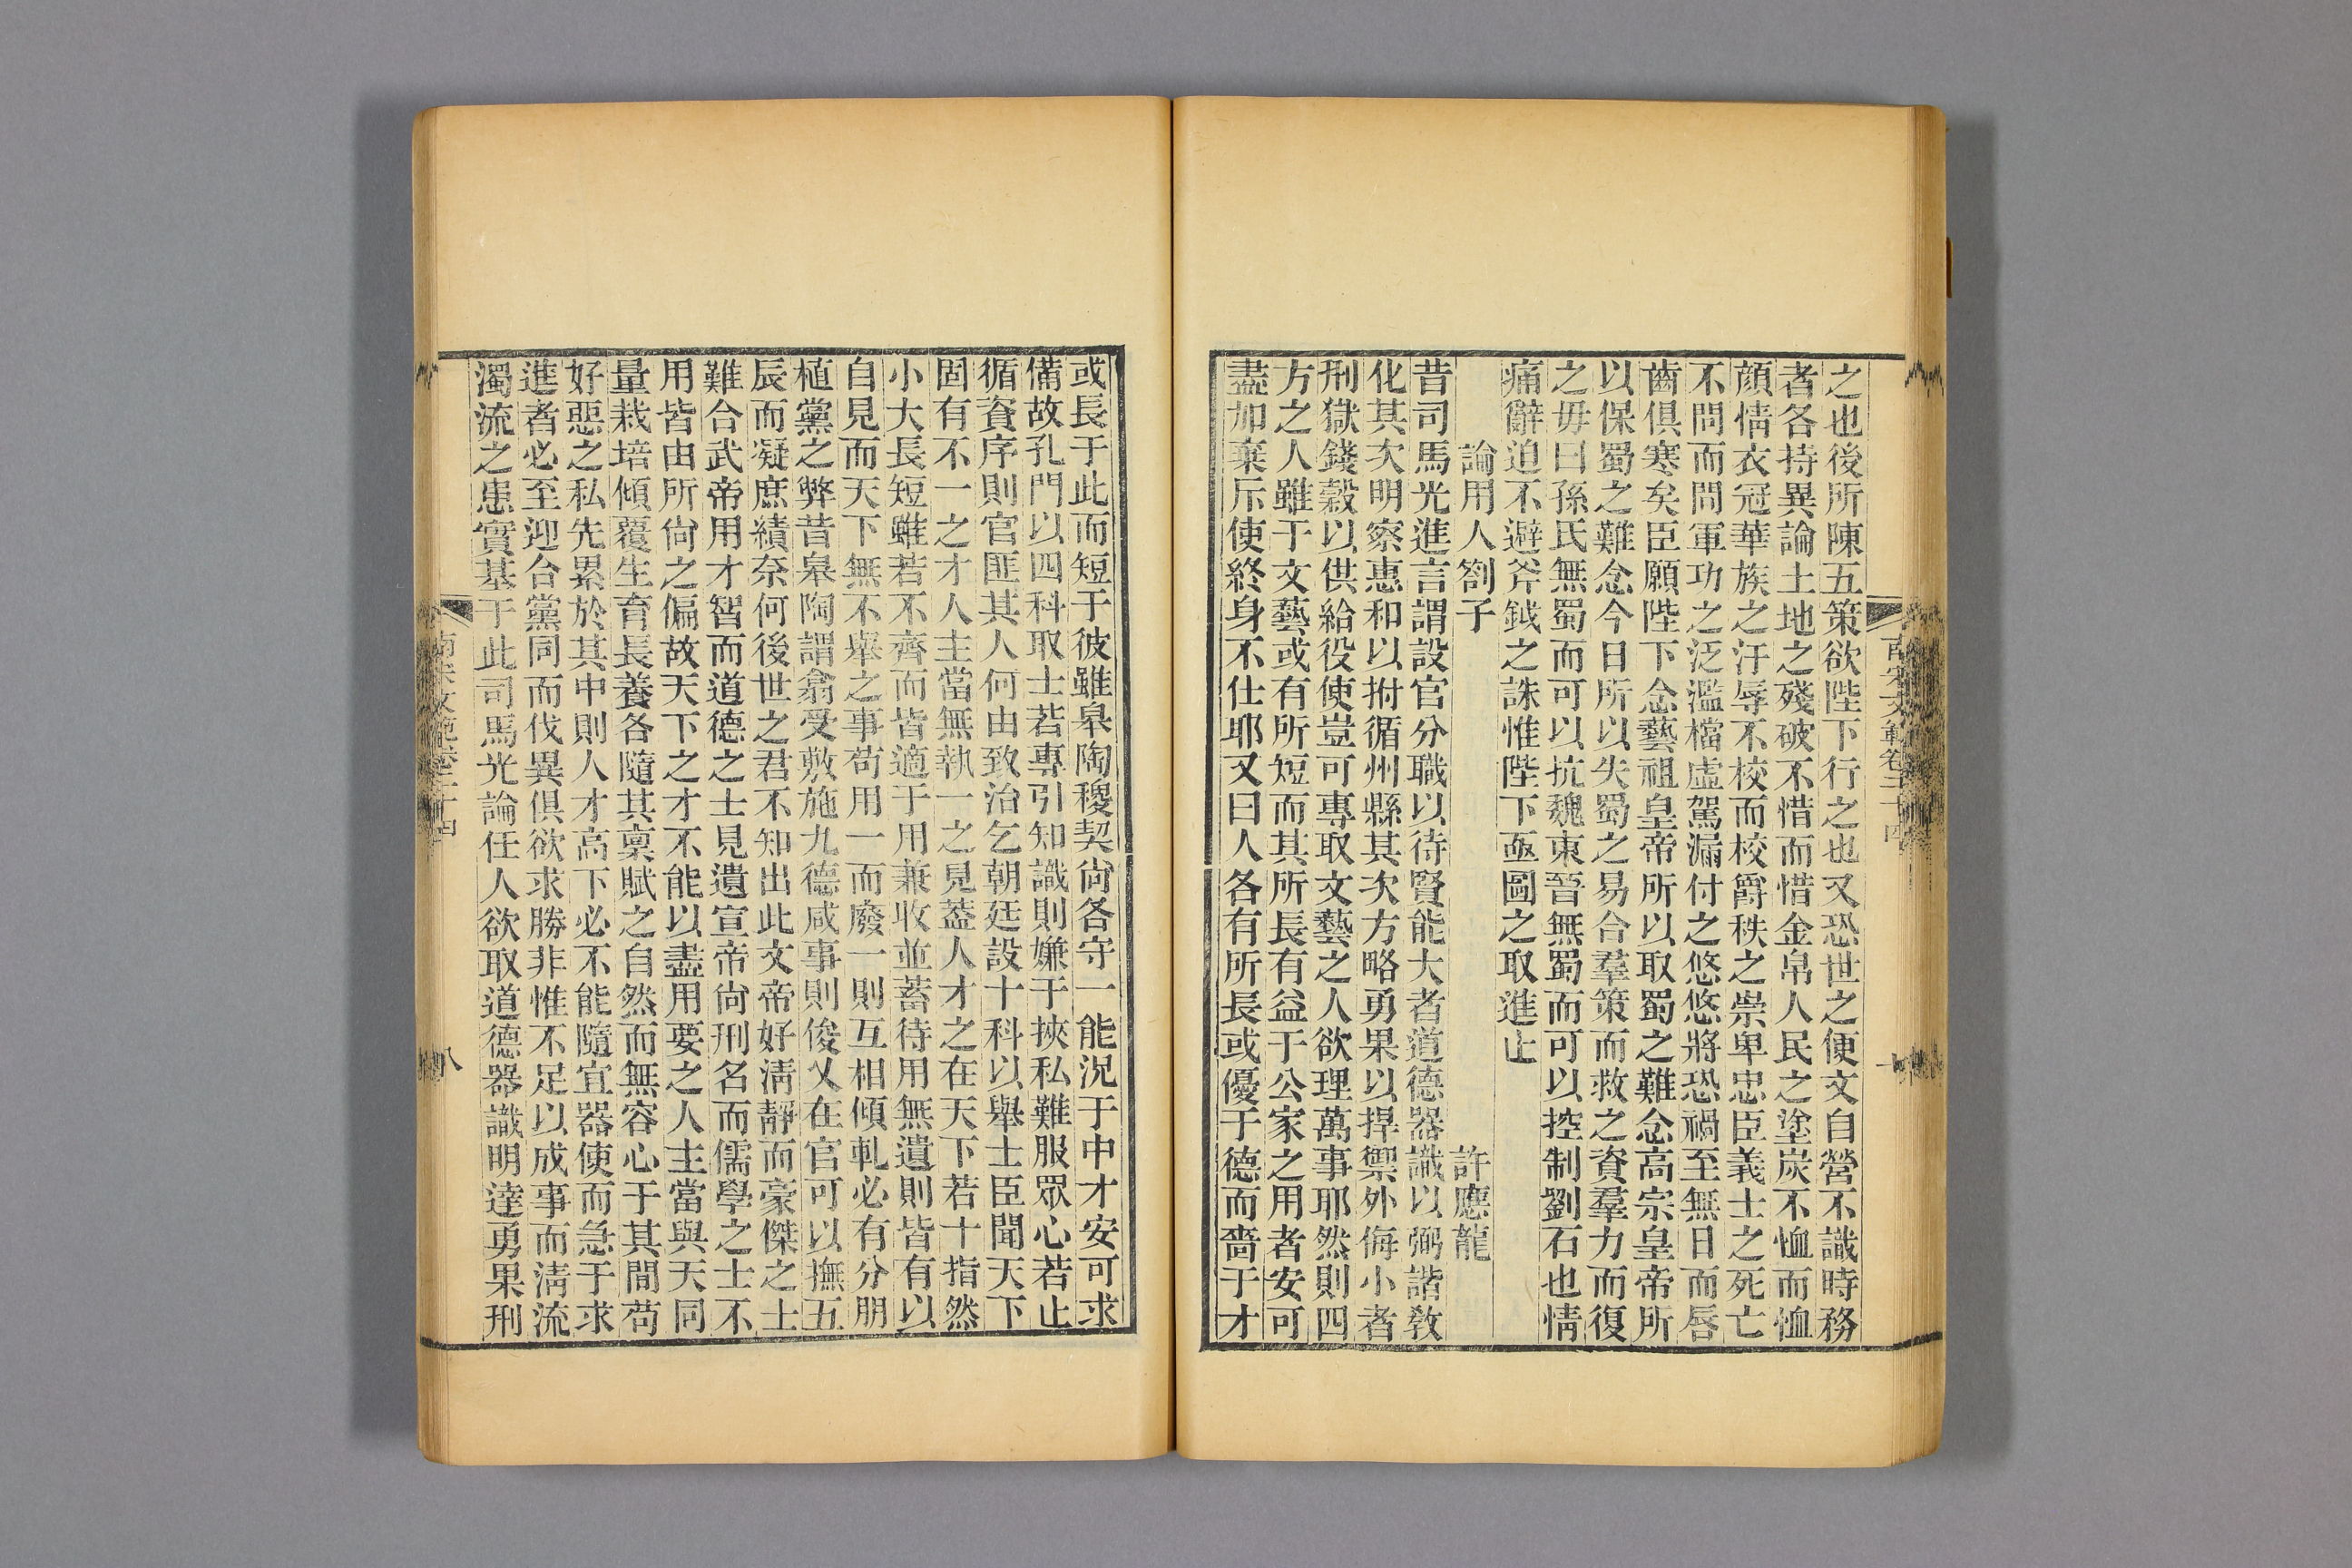 之也後所陳五策欲陛下行之也又恐世之便文自營不識時務
者各持異論土地之殘破不惜而惜金帛人民之塗炭不恤而恤
顏情衣冠華族之汙辱不校而校爵秩之崇卑忠臣義士之死亡
不問而問軍功之泛濫檔虛駕漏付之悠悠將恐禍至無日而唇
齒俱寒矣臣願陛下念藝祖皇帝所以取蜀之難念高宗皇帝所
以保蜀之難念今日所以失蜀之易合羣策而救之資羣力而復
之毋曰孫氏無蜀而可以抗魏東晉無蜀而可以控制劉石也情
痛辭迫不避斧鉞之誅惟陛下亟圖之取進止
論用人劄子
許應龍
昔司馬光進言謂設官分職以待賢能大者道德器識以弼諧敎
化其次明察惠和以拊循州縣其次方略勇果以捍禦外侮小者
刑獄錢穀以供給役使豈可專取文藝之人欲理萬事耶然則四
方之人雖于文藝或有所短而其所長有益于公家之用者安可
盡加棄斥使終身不仕耶又曰人各有所長或優于德而嗇于才
南宋文範卷二十四
或長于此而短于彼雖皋陶稷契尙各守一能況于中才安可求
備故孔門以四科取士若專引知識則嫌于挾私難服眾心若止
循資序則官匪其人何由致治乞朝廷設十科以舉士臣聞天下
固有不一之才人主當無執一之見蓋人才之在天下若十指然
小大長短雖若不齊而皆適于用兼收並蓄待用無遺則皆有以
自見而天下無不舉之事苟用一而廢一則互相傾軋必有分朋
植黨之弊昔皋陶謂翕受敷施九德咸事則俊乂在官可以撫五
辰而凝庶績奈何後世之君不知出此文帝好淸靜而豪傑之士
難合武帝用才智而道德之士見遺宣帝尙刑名而儒學之士不
用皆由所尙之偏故天下之才不能以盡用要之人主當與天同
量栽培傾覆生育長養各隨其稟賦之自然而無容心于其閒苟
好惡之私先累於其中則人才高下必不能隨宜器使而急于求
進者必至迎合黨同而伐異俱欲求勝非惟不足以成事而淸流
濁流之患實基于此司馬光論任人欲取道德器識明達勇果刑
南宋文範卷二十四
八